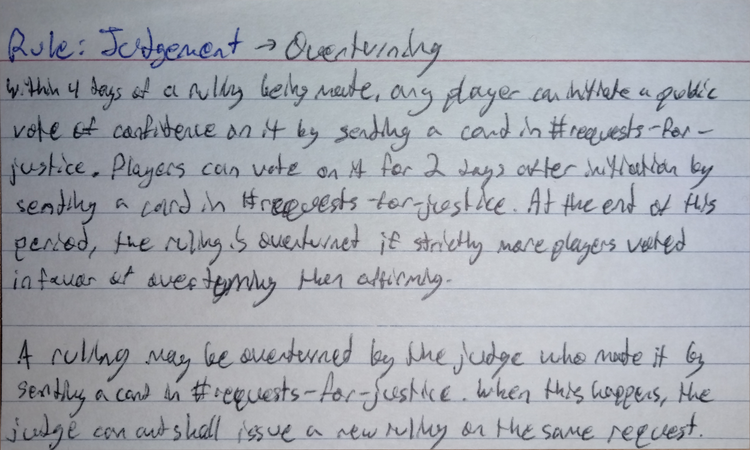 Rule: Judgement → Overturning
Within 4 days of a ruling being made, any player can initiate a public
vote of confidence on it by sending a card in #requests-for-
justice. Players can vote on it for 2 days after initiation by
sending a card in #requests-for-justice. At the end of this
period, the ruling is overturned if strictly more players voted
in favor of overturning then affirming.
A ruling may be overturned by the judge who made it by
sending a card in #requests-for-justice. When this happens, the
judge can and shall issue a new ruling on the same request.